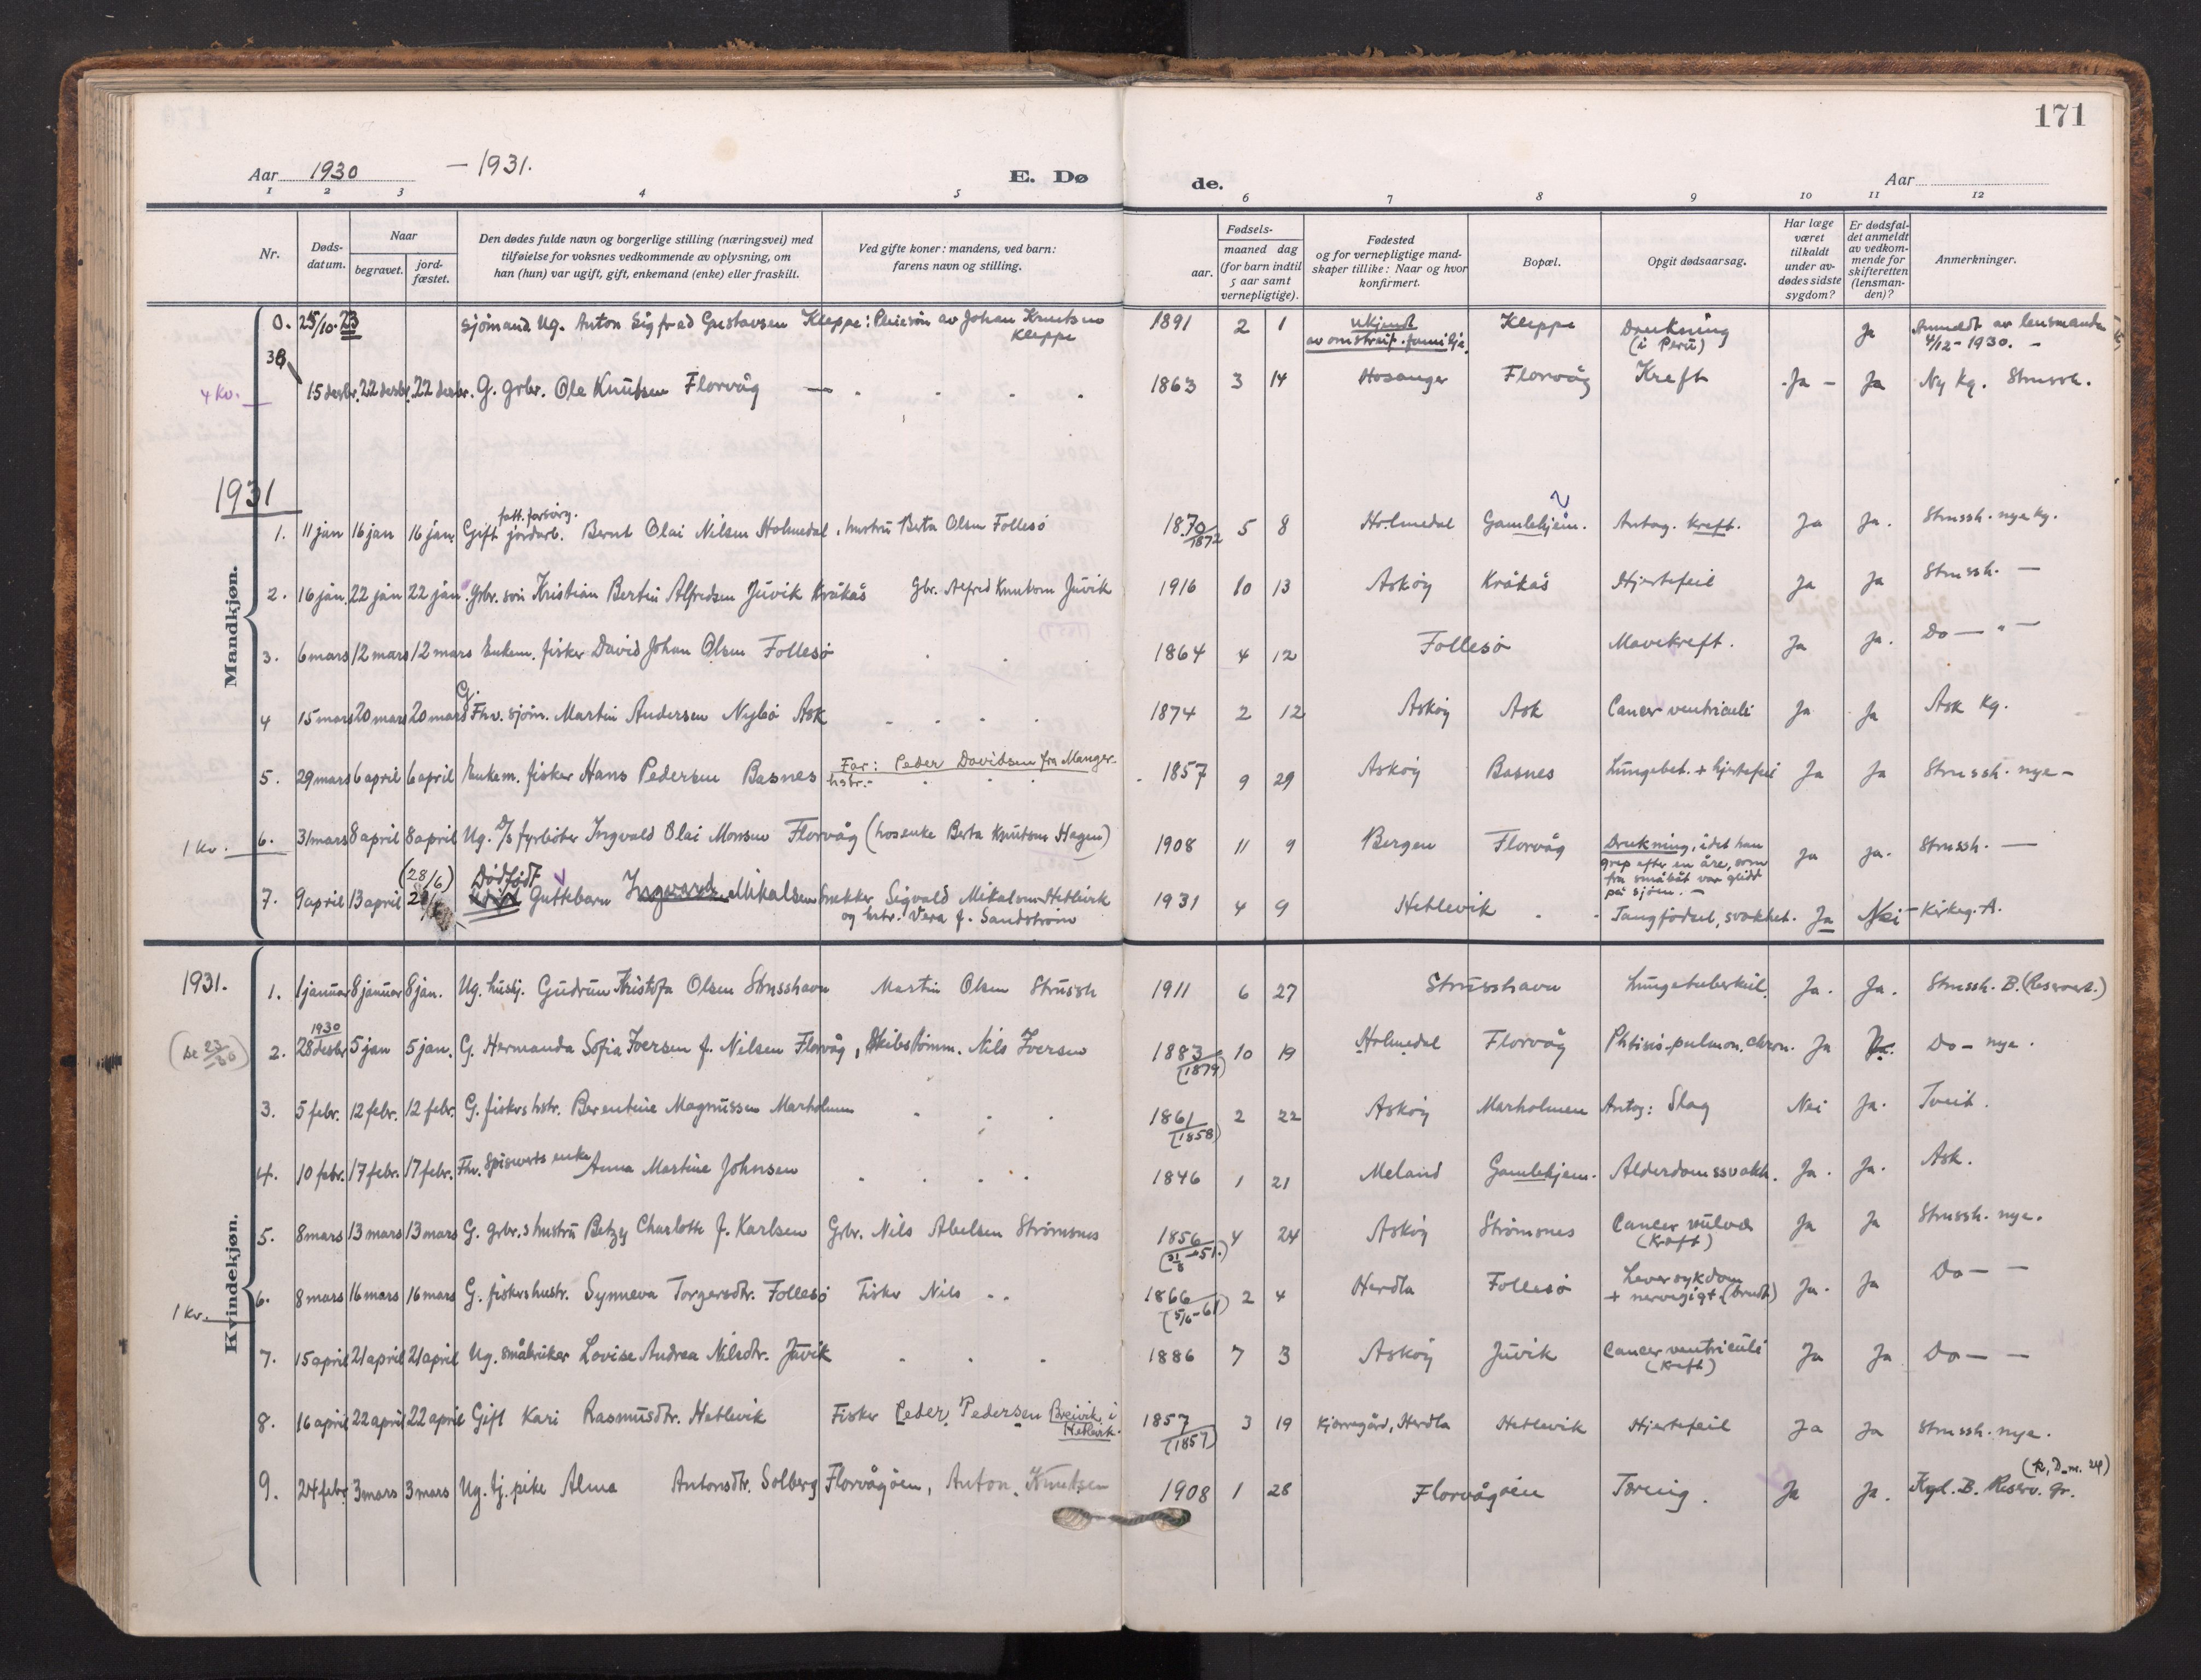 171
Aar 1930 — 1931.
E. Dø de.
Aar
1 2 3 4 5 6 7 8 9 10 11 12
Nr.
Døds-
datum.
Naar
begravet.
jord-
fæstet.
Den dødes fulde navn og borgerlige stilling (næringsvei) med
tilføielse for voksnes vedkommende av oplysning, om
han (hun) var ugift, gift, enkemand (enke) eller fraskilt.
Ved gifte koner: mandens, ved barn:
farens navn og stilling.
Fødsels-
aar.
maaned dag
(for barn indtil
5 aar samt
vernepligtige).
Fødested
og for vernepligtige mand-
skaper tillike: Naar og hvor
konfirmert.
Bopæl.
Opgit dødsaarsag.
Har læge
været
tilkaldt
under av-
dødes sidste
sygdom?
Er dødsfal-
det anmeldt
av vedkom-
mende for
skifteretten
(lensman-
den)?
Anmerkninger.
Mandkjøn.
0. 25/10. 23 Sjømand Ug. Anton Sigfred Gustavsen Kleppe: Pleiesøn av Johan Knutsen Kleppe 1891 2 1 Ukjendt av omstreif. familje. Kleppe Drukning (i Perú) Ja Anmeldt av lensmanden 4/12-1930. –
38 4 Kv. 15 desbr. 22 desbr. 22 desbr. G. grbr. Ole Knutsen Florvåg — 1863 3 14 Hosanger Florvåg Kreft Ja – Ja Ny kg. Strussh.
1931
1. 11 jan 16 jan 16 jan. Gift jordarb. fatt. forsørg. Bernt Olai Nilsen Holmedal, hustru Berta Olsen Follesø 1870 / 1872 5 8 Holmedal Gamlehjem. Antag. kreft. Ja Ja. Strussh. nye kg.
2. 16 jan. 22 jan 22 jan. Grbr. søn Kristian Bertin Alfredsen Juvik Kråkås Gbr. Alfred Knutsen Juvik 1916 10 13 Askøy Kråkås Hjertefeil Ja Ja Strussh. —
3. 6 mars 12 mars 12 mars Enkem. fisker David Johan Olsen Follesø 1864 4 12 Follesø Mavekreft. Ja Ja. Do — " —
4 15 mars 20 mars 20 mars G. Fhv. sjøm. Martin Andersen Nybø Ask 1874 2 12 Askøy Ask Cancer ventriculi Ja Ja Ask kg.
5. 29 mars 6 april 6 april Enkem. fisker Hans Pedersen Basnes Far: Peder Davidsen fra Manger. hstr.- 1857 9 29 Askøy Basnes Lungebet. + hjertefeil Ja Ja Strussh. nye –
1 Kv. 6. 31 mars 8 april 8 april Ug. D/s fyrbøter Ingvald Olai Monsen Florvåg (hos enke Berta Knutsens Hagen) 1908 11 9 Bergen Florvåg Drukning, idet han grep efter en åre, som fra småbåt var glidt på sjøen. – Ja Ja. Strussh. —
7. 9 april 13 april (28/6) Dødfødt Guttebarn Ingvard Mikalsen Snekker Sigvald Mikalsen Hetlevik og hstr. Vera f. Sandstrøm 1931 4 9 Hetlevik Tangfødsel, svakhet. Ja Nei – Kirkeg. A.
Kvindekjøn.
1931.
1. 1 januar 8 januar 8 jan. Ug. huslj. Gudrun Kristofa Olsen Strusshavn Martin Olsen Strussh 1911 6 27 Strusshavn Lungetuberkul. Ja. Ja. Strussh. B. (Reservert.)
(se 23/30) 2. 1930 28 desbr 5 jan 5 jan. G. Hermanda Sofia Iversen f. Nilsen Florvåg, Skibstømm. Nils Iversen 1883 (1879) 10 19 Holmedal Florvåg Phtisis pulmon. chron. Ja Ja. Do – nye.
3. 5 febr. 12 febr. 12 febr. G. fiskers hstr. Berentine Magnussen Marholmen 1861 (1858) 2 22 Askøy Marholmen Antag: Slag Nei Ja. Tveit.
4. 10 febr. 17 febr. 17 febr. Fhv. spiseverts enke Anna Martine Johnsen 1846 1 21 Meland Gamlehjem. Alderdomssvakh. Ja. Ja. Ask.
5. 8 mars 13 mars 13 mars G. grbr.s hustru Betzy Charlotte f. Karlsen Grbr. Nils Abelsen Strømsnes 1856 4 24 Askøy Strømsnes Cancer vulvae (kreft) Ja Ja Strussh. nye.
1 Kv. 6. 8 mars 16 mars 16 mars G. fiskers hustr. Synneva Torgersdtr. Follesø Fisker Nils 1866 (5/6-61) 2 4 Herdla Follesø Leversykdom + nervegigt (brudt) Ja. Ja Do — —
7. 15 april 21 april 21 april Ug. småbruker Lovise Andrea Nilsdtr. Juvik 1886 7 3 Askøy Juvik Cancer ventriculi (kreft) Ja Ja Do — —
8. 16 april 22 april 22 april Gift Kari Rasmusdtr. Hetlevik Fisker Peder Pedersen Breivik i Hetlevik. 1857 (1857) 3 19 Kjærregård, Herdla Hetlevik Hjertefeil Ja Ja Strussh. nye.
9. 24 febr 3 mars 3 mars Ug. tj. pike Alma Antonsdtr. Solberg Florvågøen, Anton Knutsen 1908 1 28 Florvågøen Tæring. Ja Ja. Kgl. B. Reserv. gr. (R, D. nr. 24)